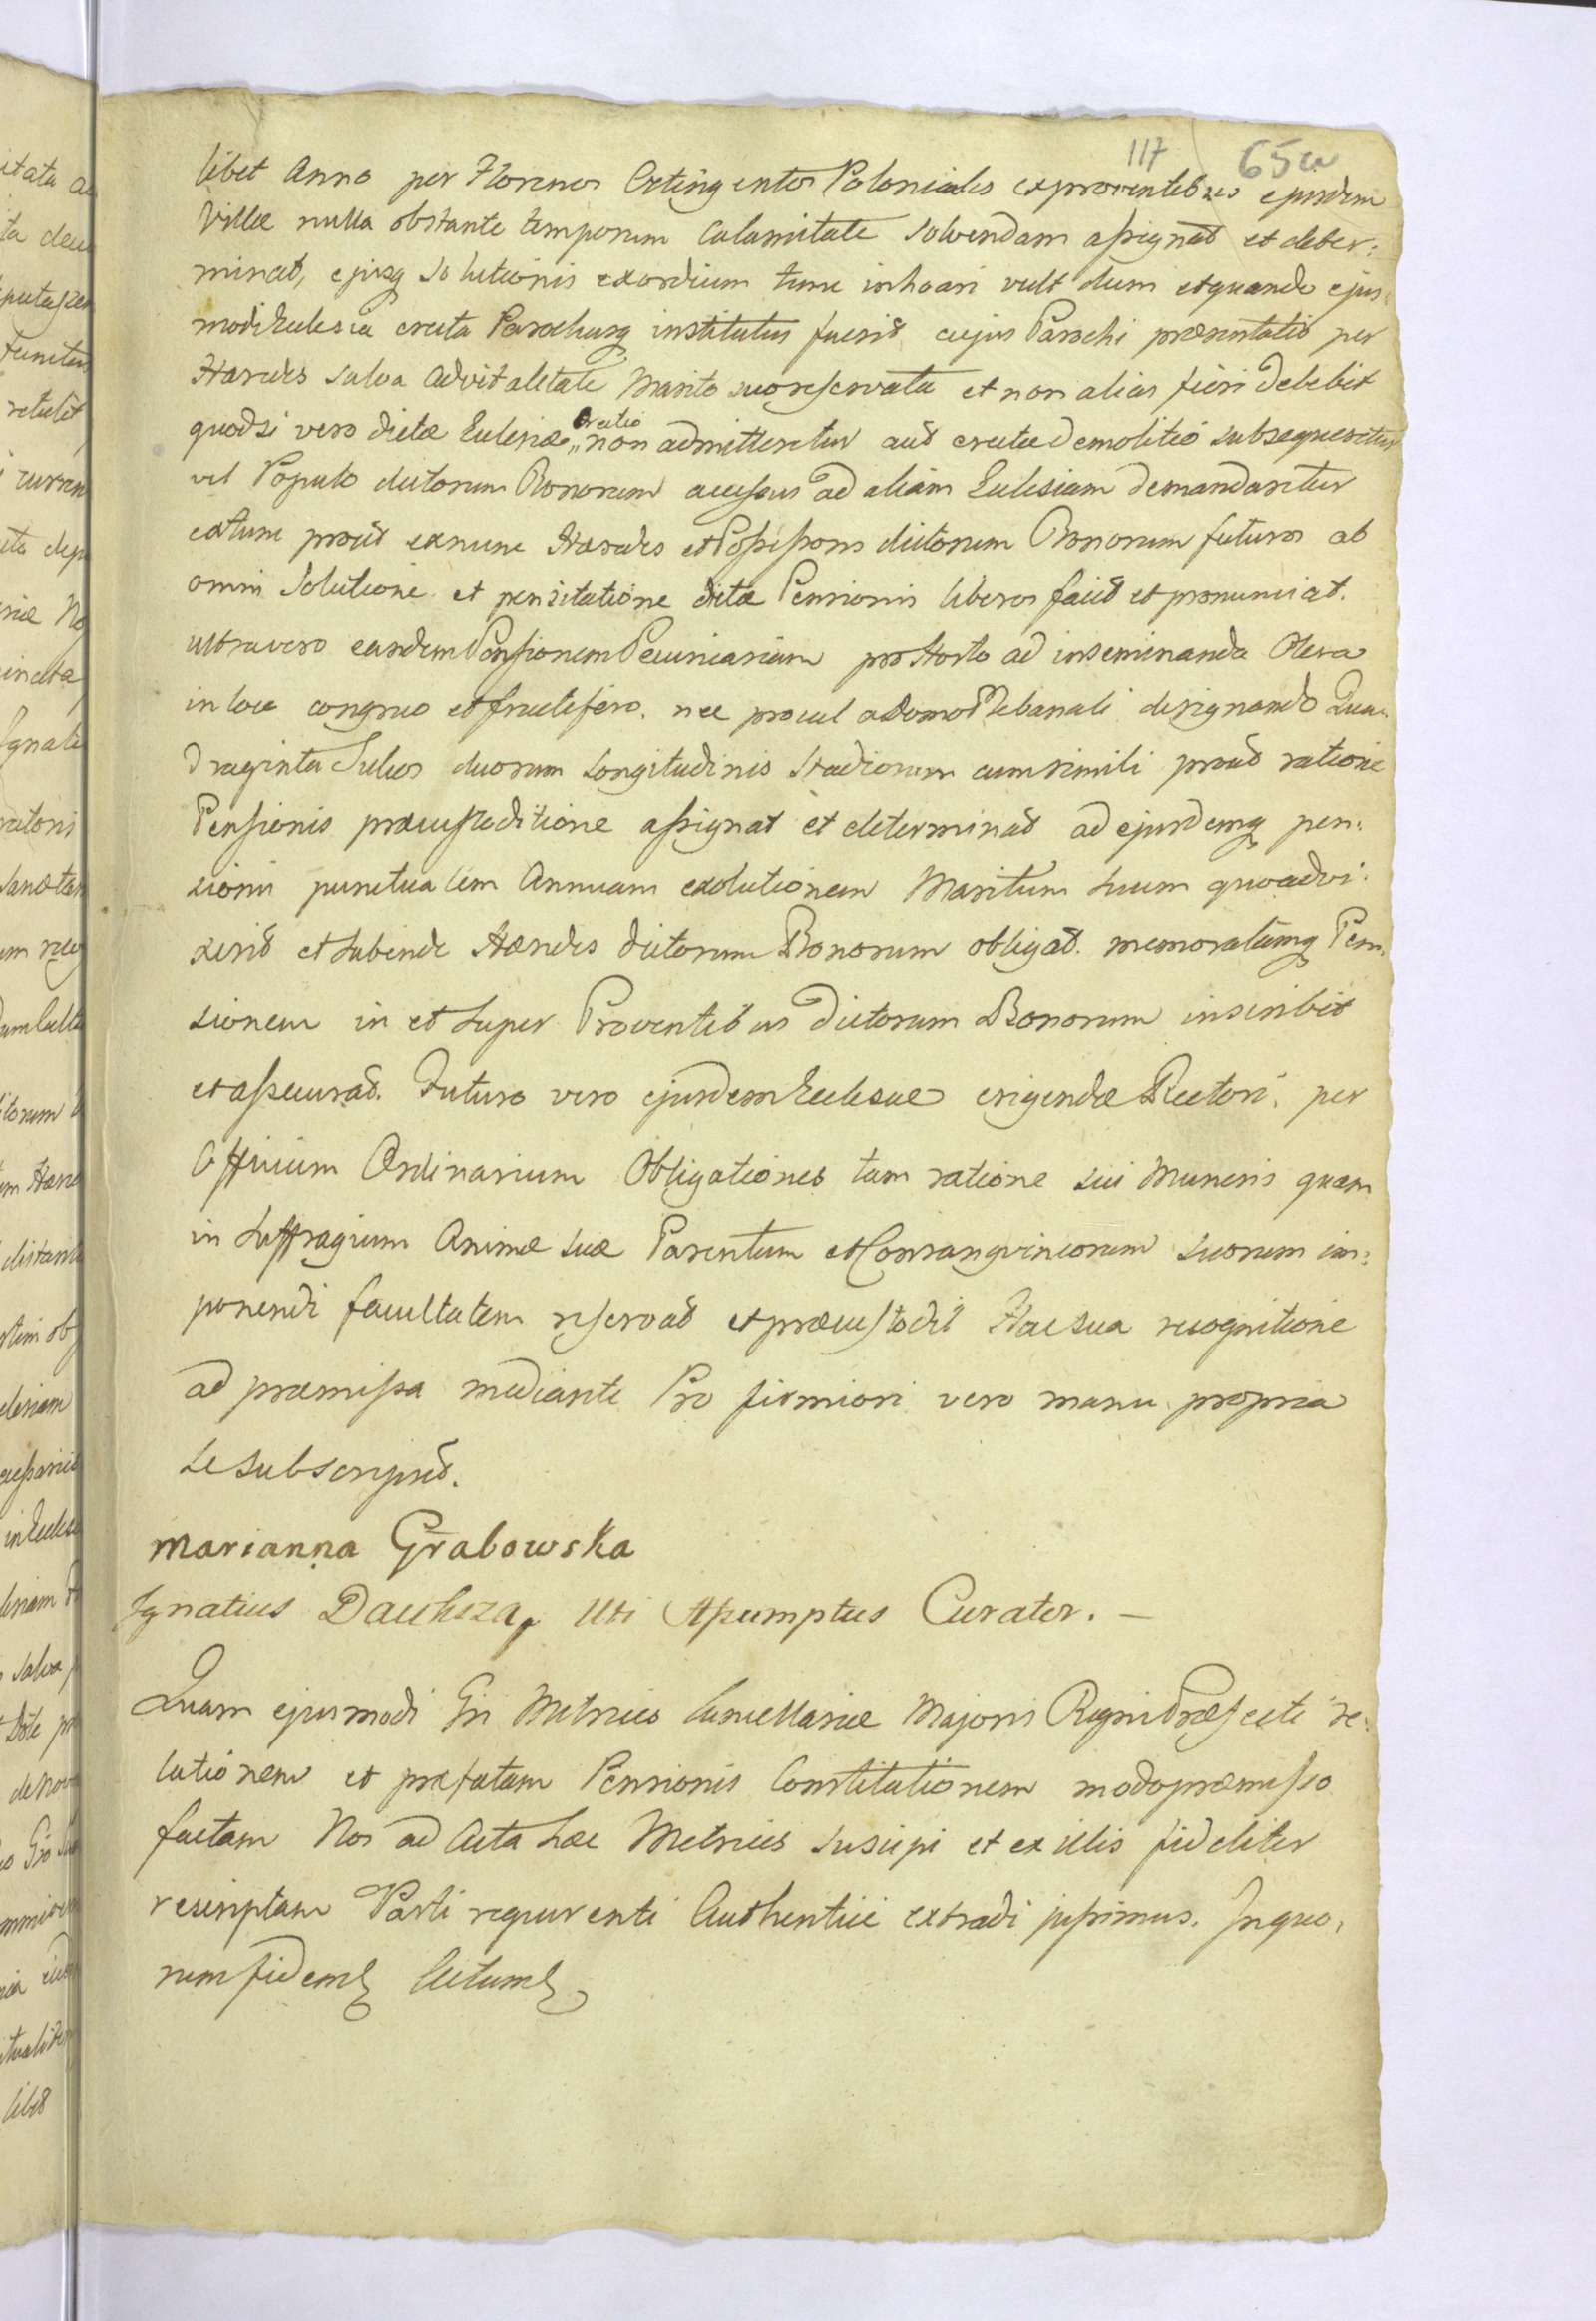 117 65a
libet Anno per Florenos Octingentos Poloniales exproventibus ejusdem
Villæ nulla obstante temporum Calamitate solvendam assignat et deter:
minat, ejusq solutionis exordium tunc inhoari vult dum etquando ejus:
modi Eulesia erecta Parochusq institutus fuerit cujus Parochi præsentatio per
Hæredes salva advitalitate Marito suo reservata et non alias fieri debebit
quodsi vero dictæ Eclesiæ erectio non admitteretur aut erectæ demolitio subsequeretur
vel Populo dictorum Bonorum accessus ad aliam Eclesiam demandaretur
extunc prout exnunc Hæredes et Possessores dictorum Bonorum futuros ab
omni solutione et pensitatione dictæ Pensionis liberos facit et pronunciat.
ultra vero eandem Pensionem Pecuniariam pro Horto ad inseminanda Olera
in loco congruo et fructifero. nec procul a domo Plebanali designando Qua:
draginta Sulcos duorum Longitudinis Stadiorum cum simili prout ratione
Pensionis præcustoditione assignat et determinat ad ejusdemq pen:
sionis punctualem Annuam exolutionem Maritum suum quoadvi:
xerit et subinde Hæredes dictorum Bonorum obligat. memoratamq Pen:
sionem in et super Proventibus dictorum Bonorum inscribit
et assecurat. Futuro vero ejusdem Eclesiæ erigendæ Rectori. per
Officium Ordinarium Obligationes tam ratione sui Muneris quam
in suffragium Animæ suæ Parentum et Consangvineorum suorum im:
ponendi facultatem reservat et præcustodit Hac sua recognitione
ad præmissa mediante Pro firmiori vero manu propria
se subscripsit.
Marianna Grabowska
Ignatius Uti Assumptus Curator. —
Quam ejusmodi Gñi Metrices Cancellariæ Majoris Regni Præfecti re:
lationem et præfatam Pensionis Constitutionem modo præmisso
factam Nos ad Acta hæc Metrices suscipi et ex illis fideliter
rescriptam Parti requirenti Authentice extradi jussimus. In quo,
rum fidem Actum